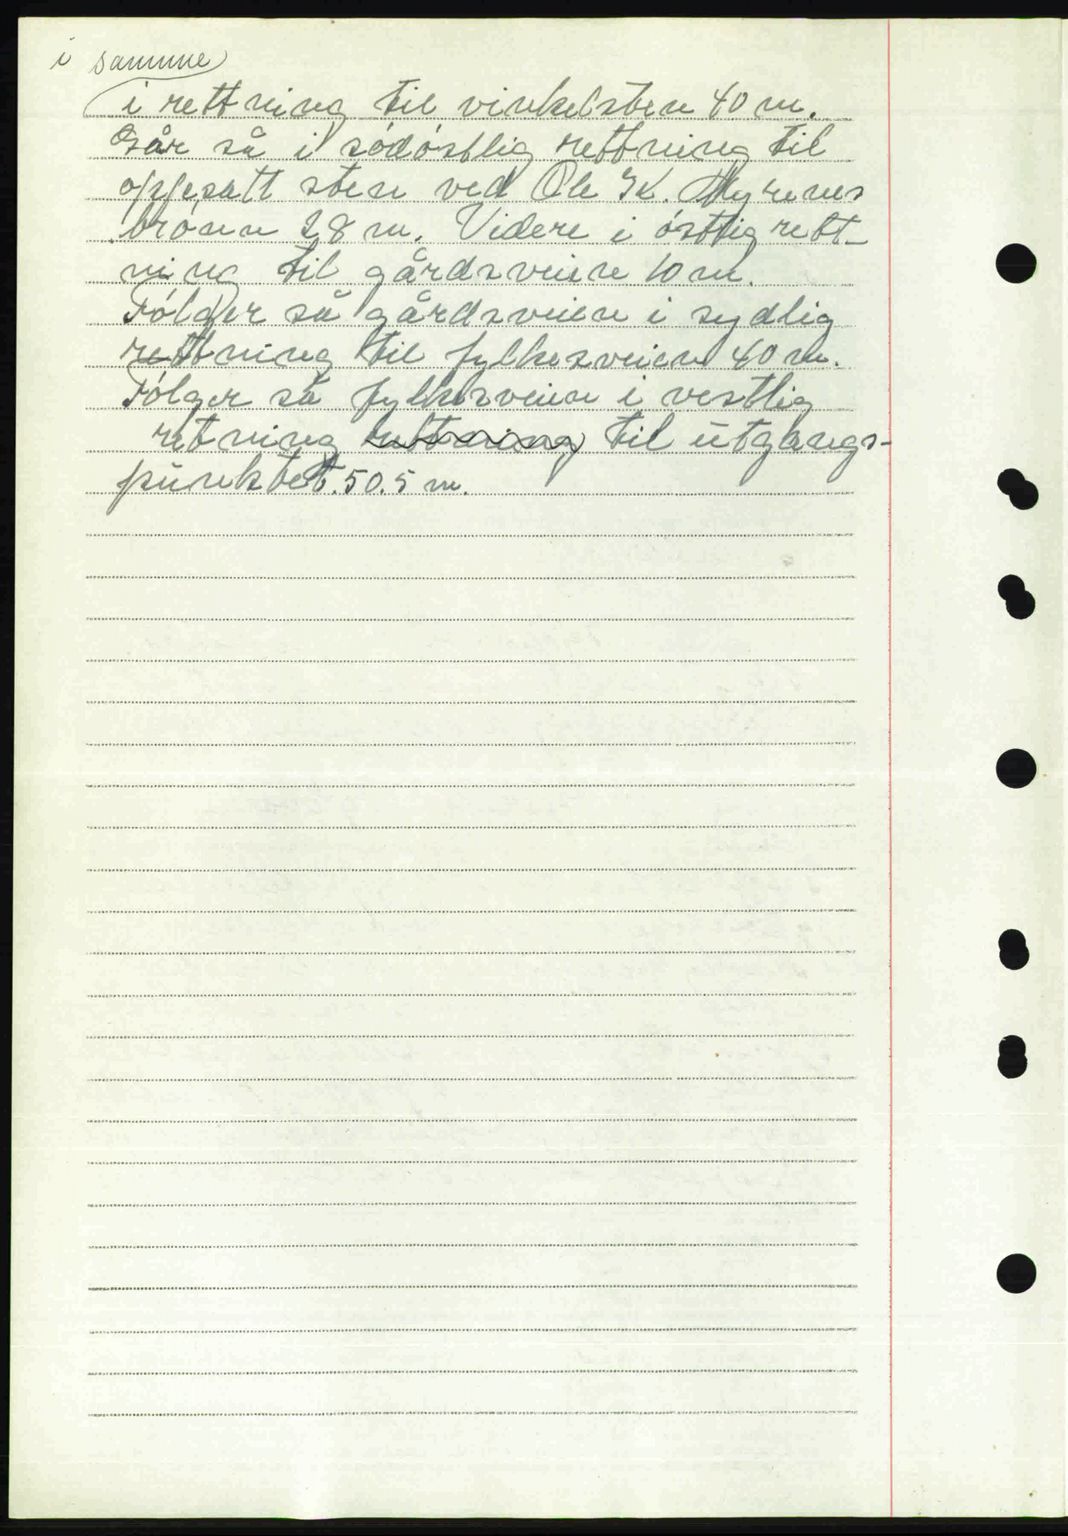 i samme
i rettning til vinkelsten 40 m.
Går så i sódóstlig rettning til
oppesatt sten ved Ole K. Myrenes
brónn 28 m. Videre i óstlig rett-
ning til gårdsveien 10 m.
Fólger så gårdsveien i sydlig
rettning til fylkesveien 40 m.
Fólger så fylkesveien i vestlig
retning rettning til utgangs-
punktet. 50.5 m.